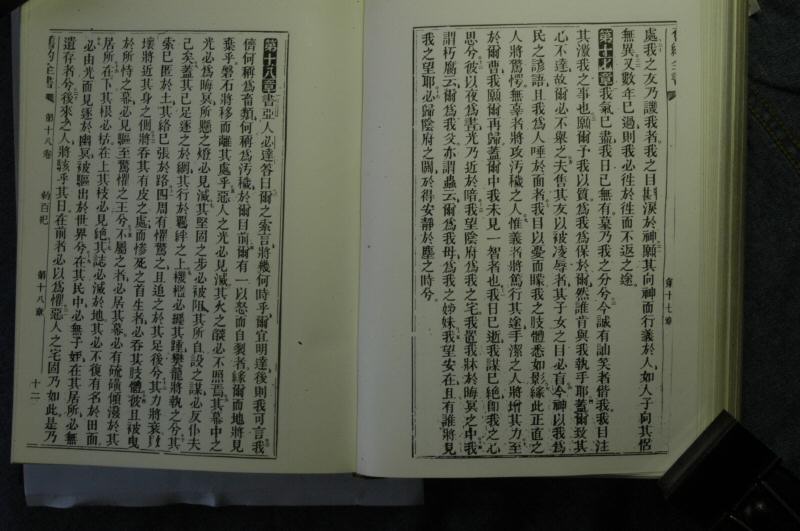 舊約全書
第十七章
處我之友乃譏我者我之目斟淚於神願其向神而行義於人如人子向其侶
無異又數年已過則我必徃於徃而不返之途
第十七章我氣已盡我日已無有墓乃我之分兮今誠有訕笑者偕我我目注
其激我之事也願爾予我以質爲我爲保於爾然誰肯與我執手耶蓋爾致其
心不達故爾必不舉之夫售其友以被凌辱者其子女之目必盲今神以我爲
民之諺語且我爲人唾於面者我目以憂而矇我之肢體悉如影緣此正直之
人將驚愕無辜者將攻汚穢之人惟義者將篤行其途手潔之人將增其力至
於爾曹我願爾再歸蓋爾中我未見一智者也我日已逝我謀已絕即我之心
思兮彼以夜爲晝光乃近於暗我望陰府爲我之宅我置我牀於晦冥之中我
謂朽腐云爾爲我父亦謂蟲云爾爲我母爲我之姊妹我望安在且有誰將見
我之望耶必歸陰府之關於得安靜於塵之時兮
第十八章書亞人必達答曰爾之索言將幾何時乎爾宜明達後則我可言我
儕何稱爲畜類何稱爲汚穢於爾目前爾有一以怒而自裂者緣爾而地將見
棄乎磐石將移而離其處乎惡人之光必見滅其火之燄必不照焉其幕中之
光必爲晦冥所懸之燈必見滅其堅固之步必被阻其所自設之謀必反仆夫
己矣蓋其己足逐之於網其行於羈絆之上機檻必繩其踵攣龍將執之兮其
索已匿於土其絡已張於路四周有懼驚之且追之於其足後兮其力將衰
壞將近其身之側將吞其有皮之處而慘死之首生者必吞其肢體彼且被曳
於所恃之幕必見驅至驚懼之王兮不屬之者必居其幕必有硫磺傾潑於其
居所在下其根必枯在上其枝必見絕其誌必滅於地其必不復有名於田面
必由光而見逐於幽冥被驅出於世界兮在其民中必無子姪在其居所必無
遺存者兮後來之人將該乎其日在前者必以爲懼惡人之宅固乃如此是乃
舊約全書
第十八卷
約百祀
第十八章
十二